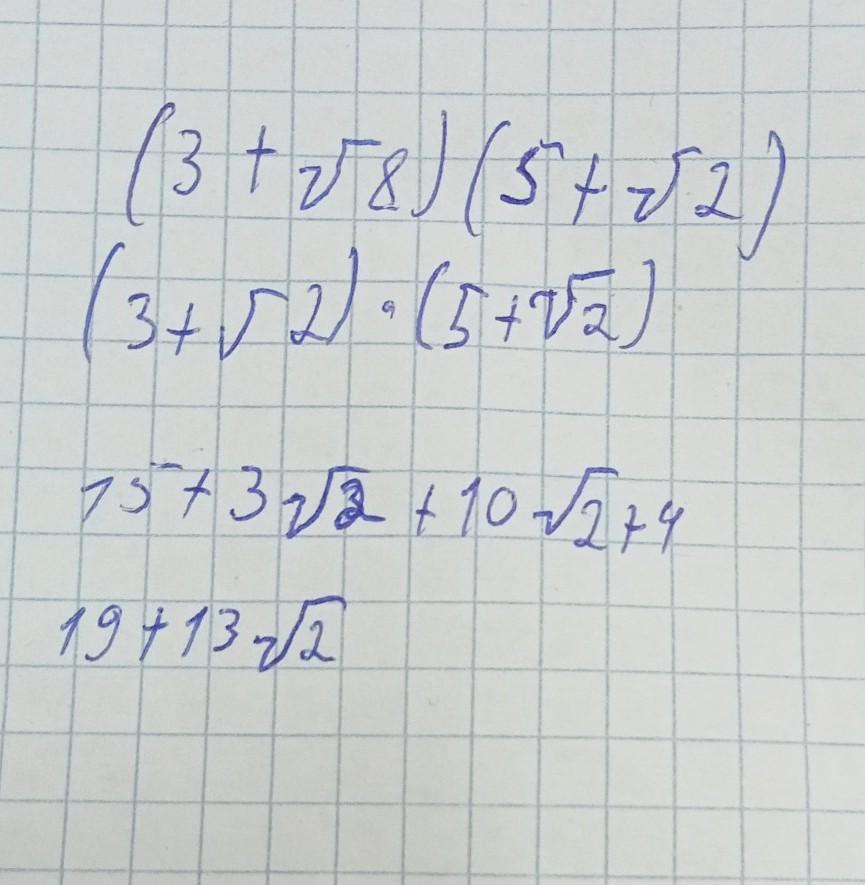 (3 + √8)(5 + √2)
(3 + √2) · (5 + √2)
15 + 3√2 + 10√2 + 4
19 + 13√2